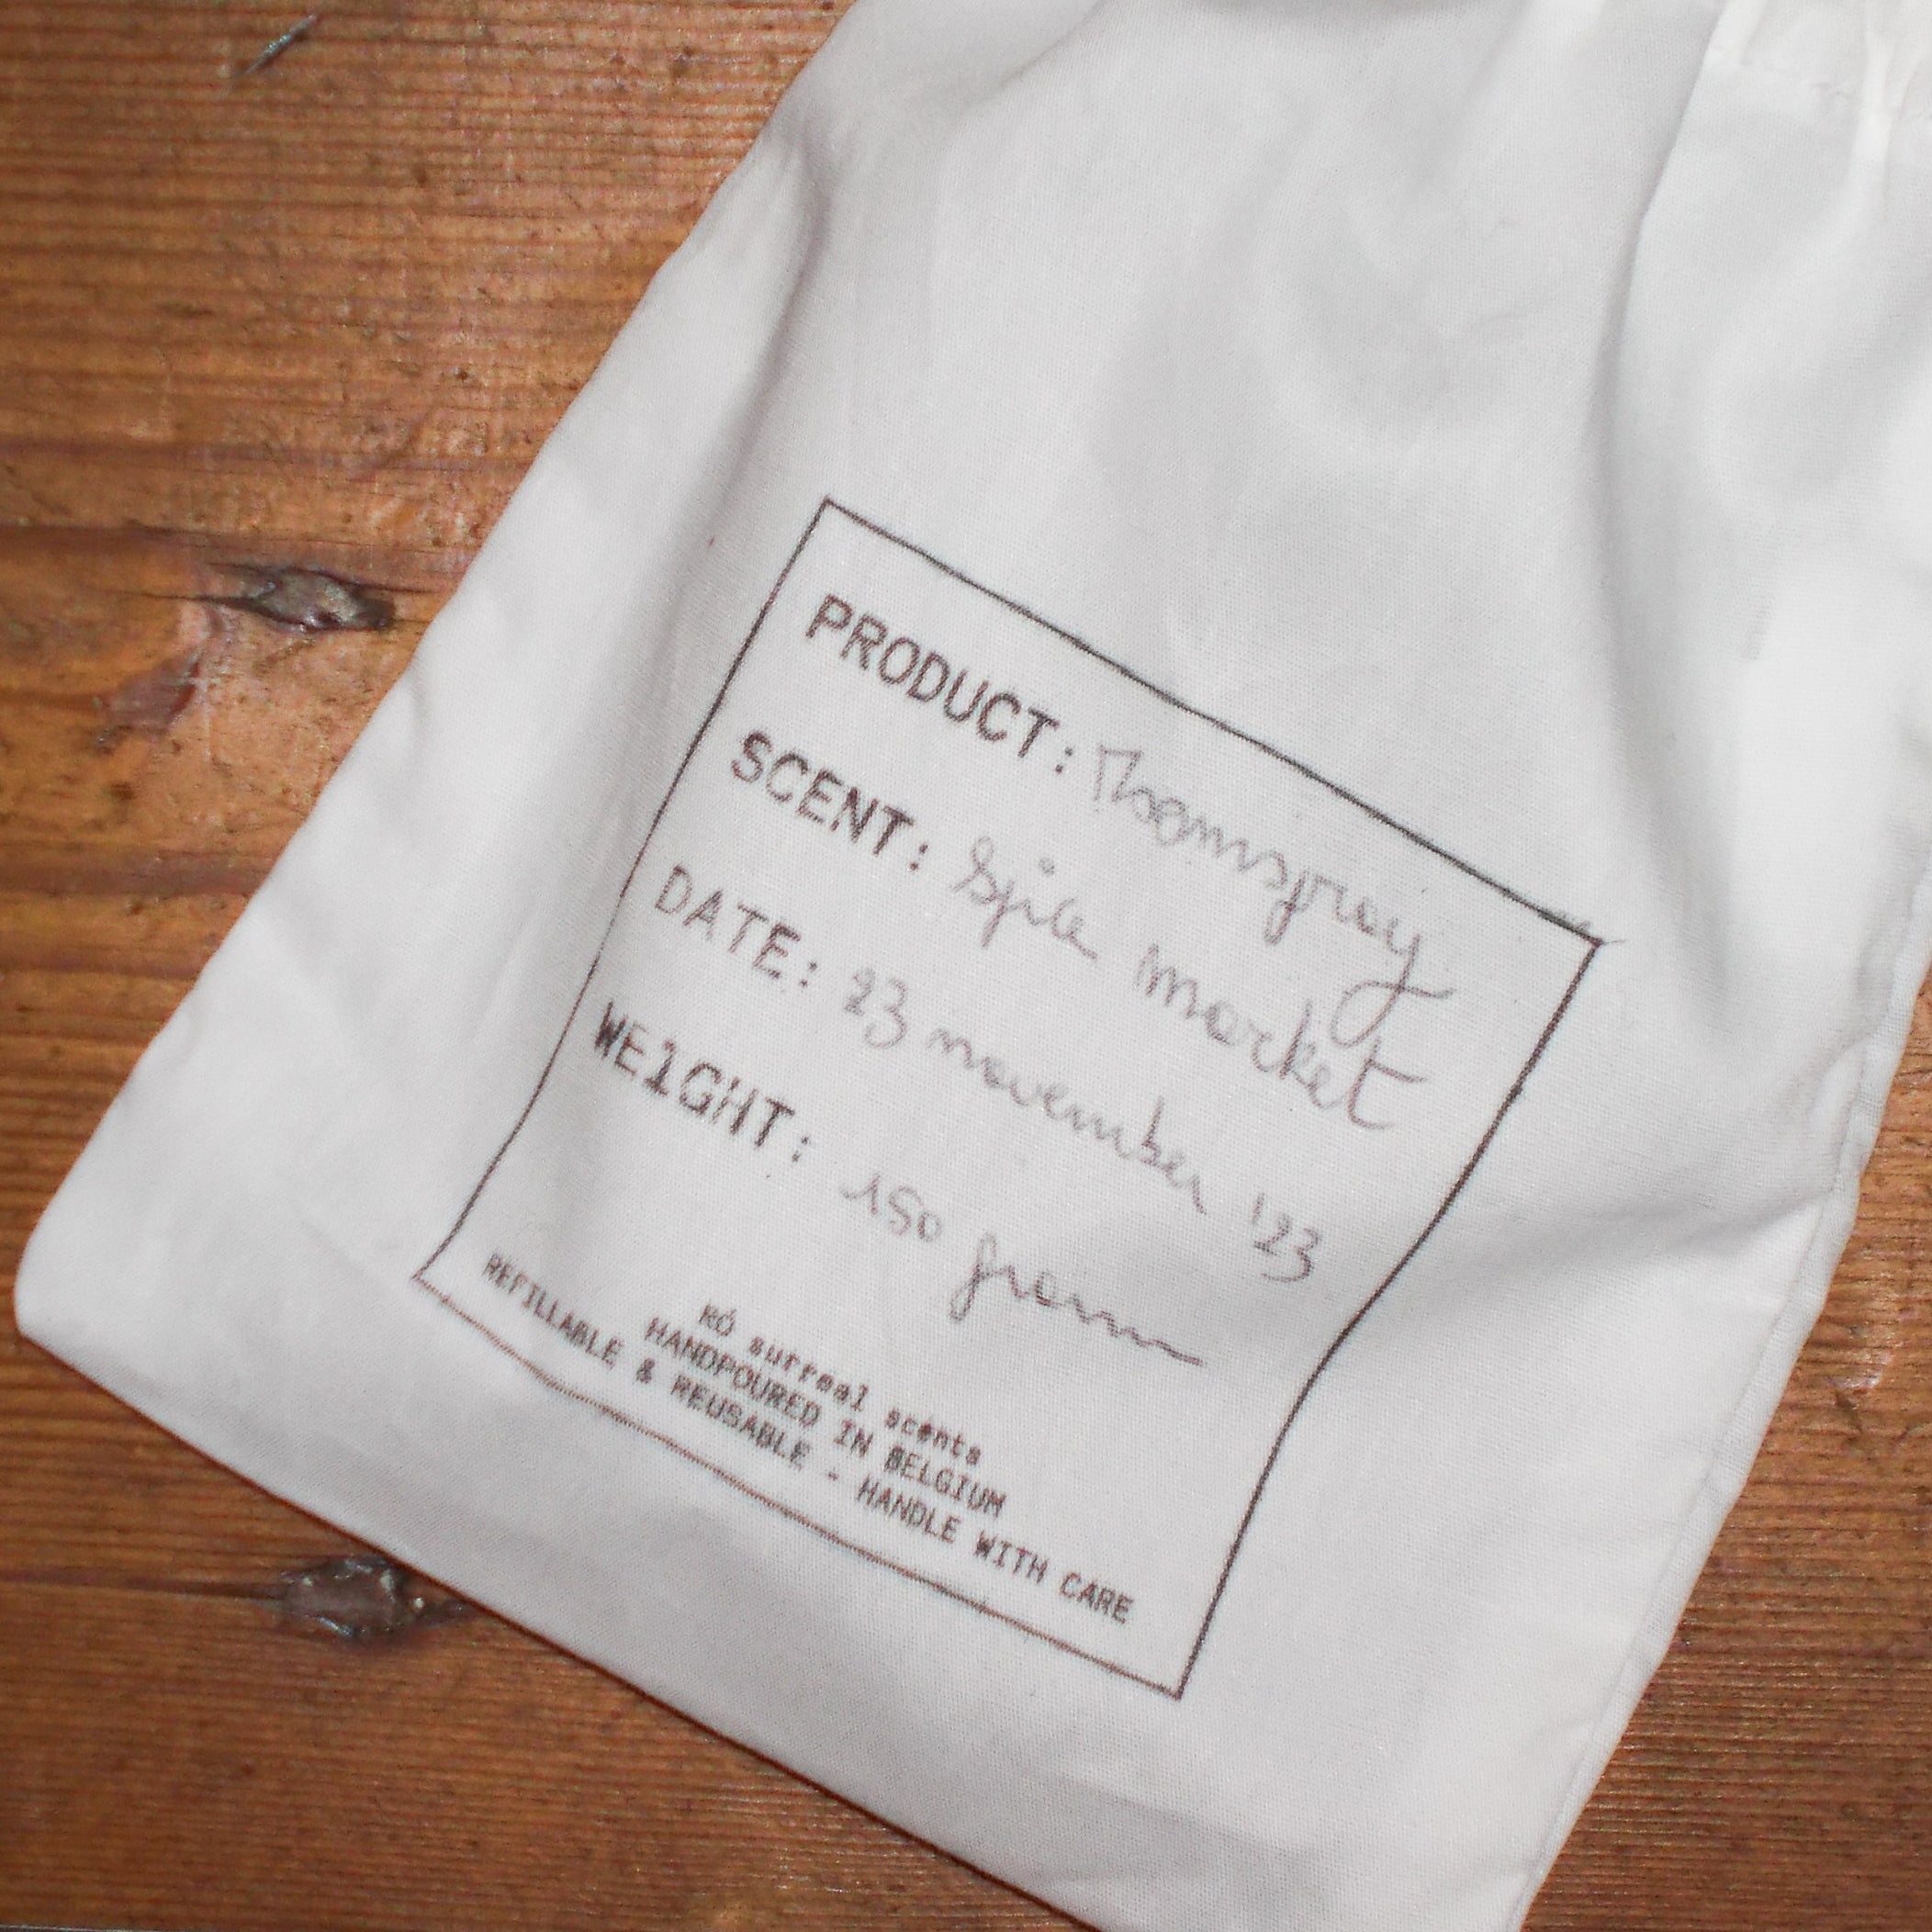 PRODUCT: Thomspray
SCENT: Spice Market
DATE: 23 november '23
WEIGHT: 150 gram
RÓ surreal scents
HANDPOURED IN BELGIUM
REFILLABLE & REUSABLE - HANDLE WITH CARE